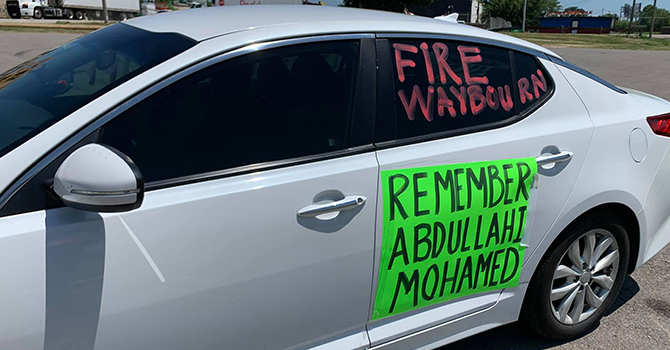 FIRE
WAYBOURN
REMEMBER
ABDULLAHI
MOHAMED